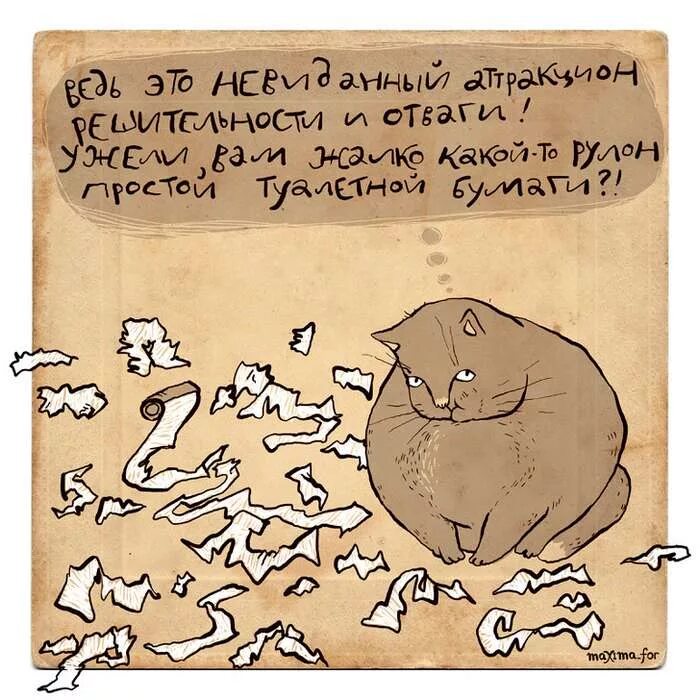 ведь это невиданный аттракцион
решительности и отваги!
ужели, вам жалко какой-то рулон
простой туалетной бумаги?!
maxima_for